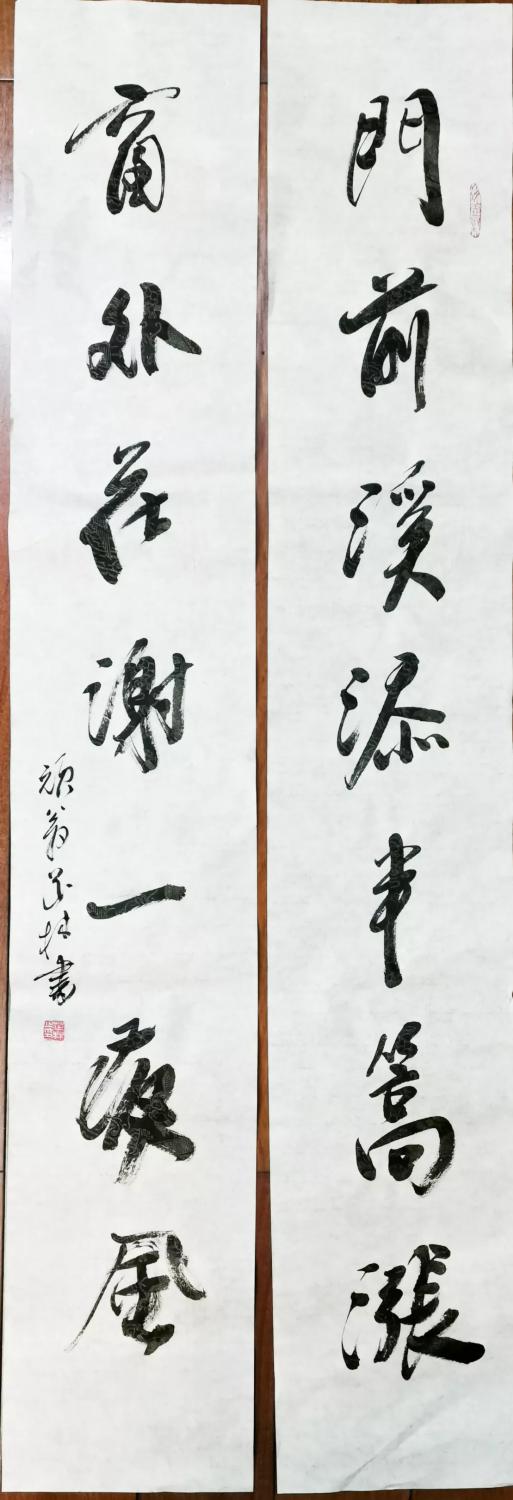 門前溪添半篙漲
窗外花謝一夜風
頑翁書